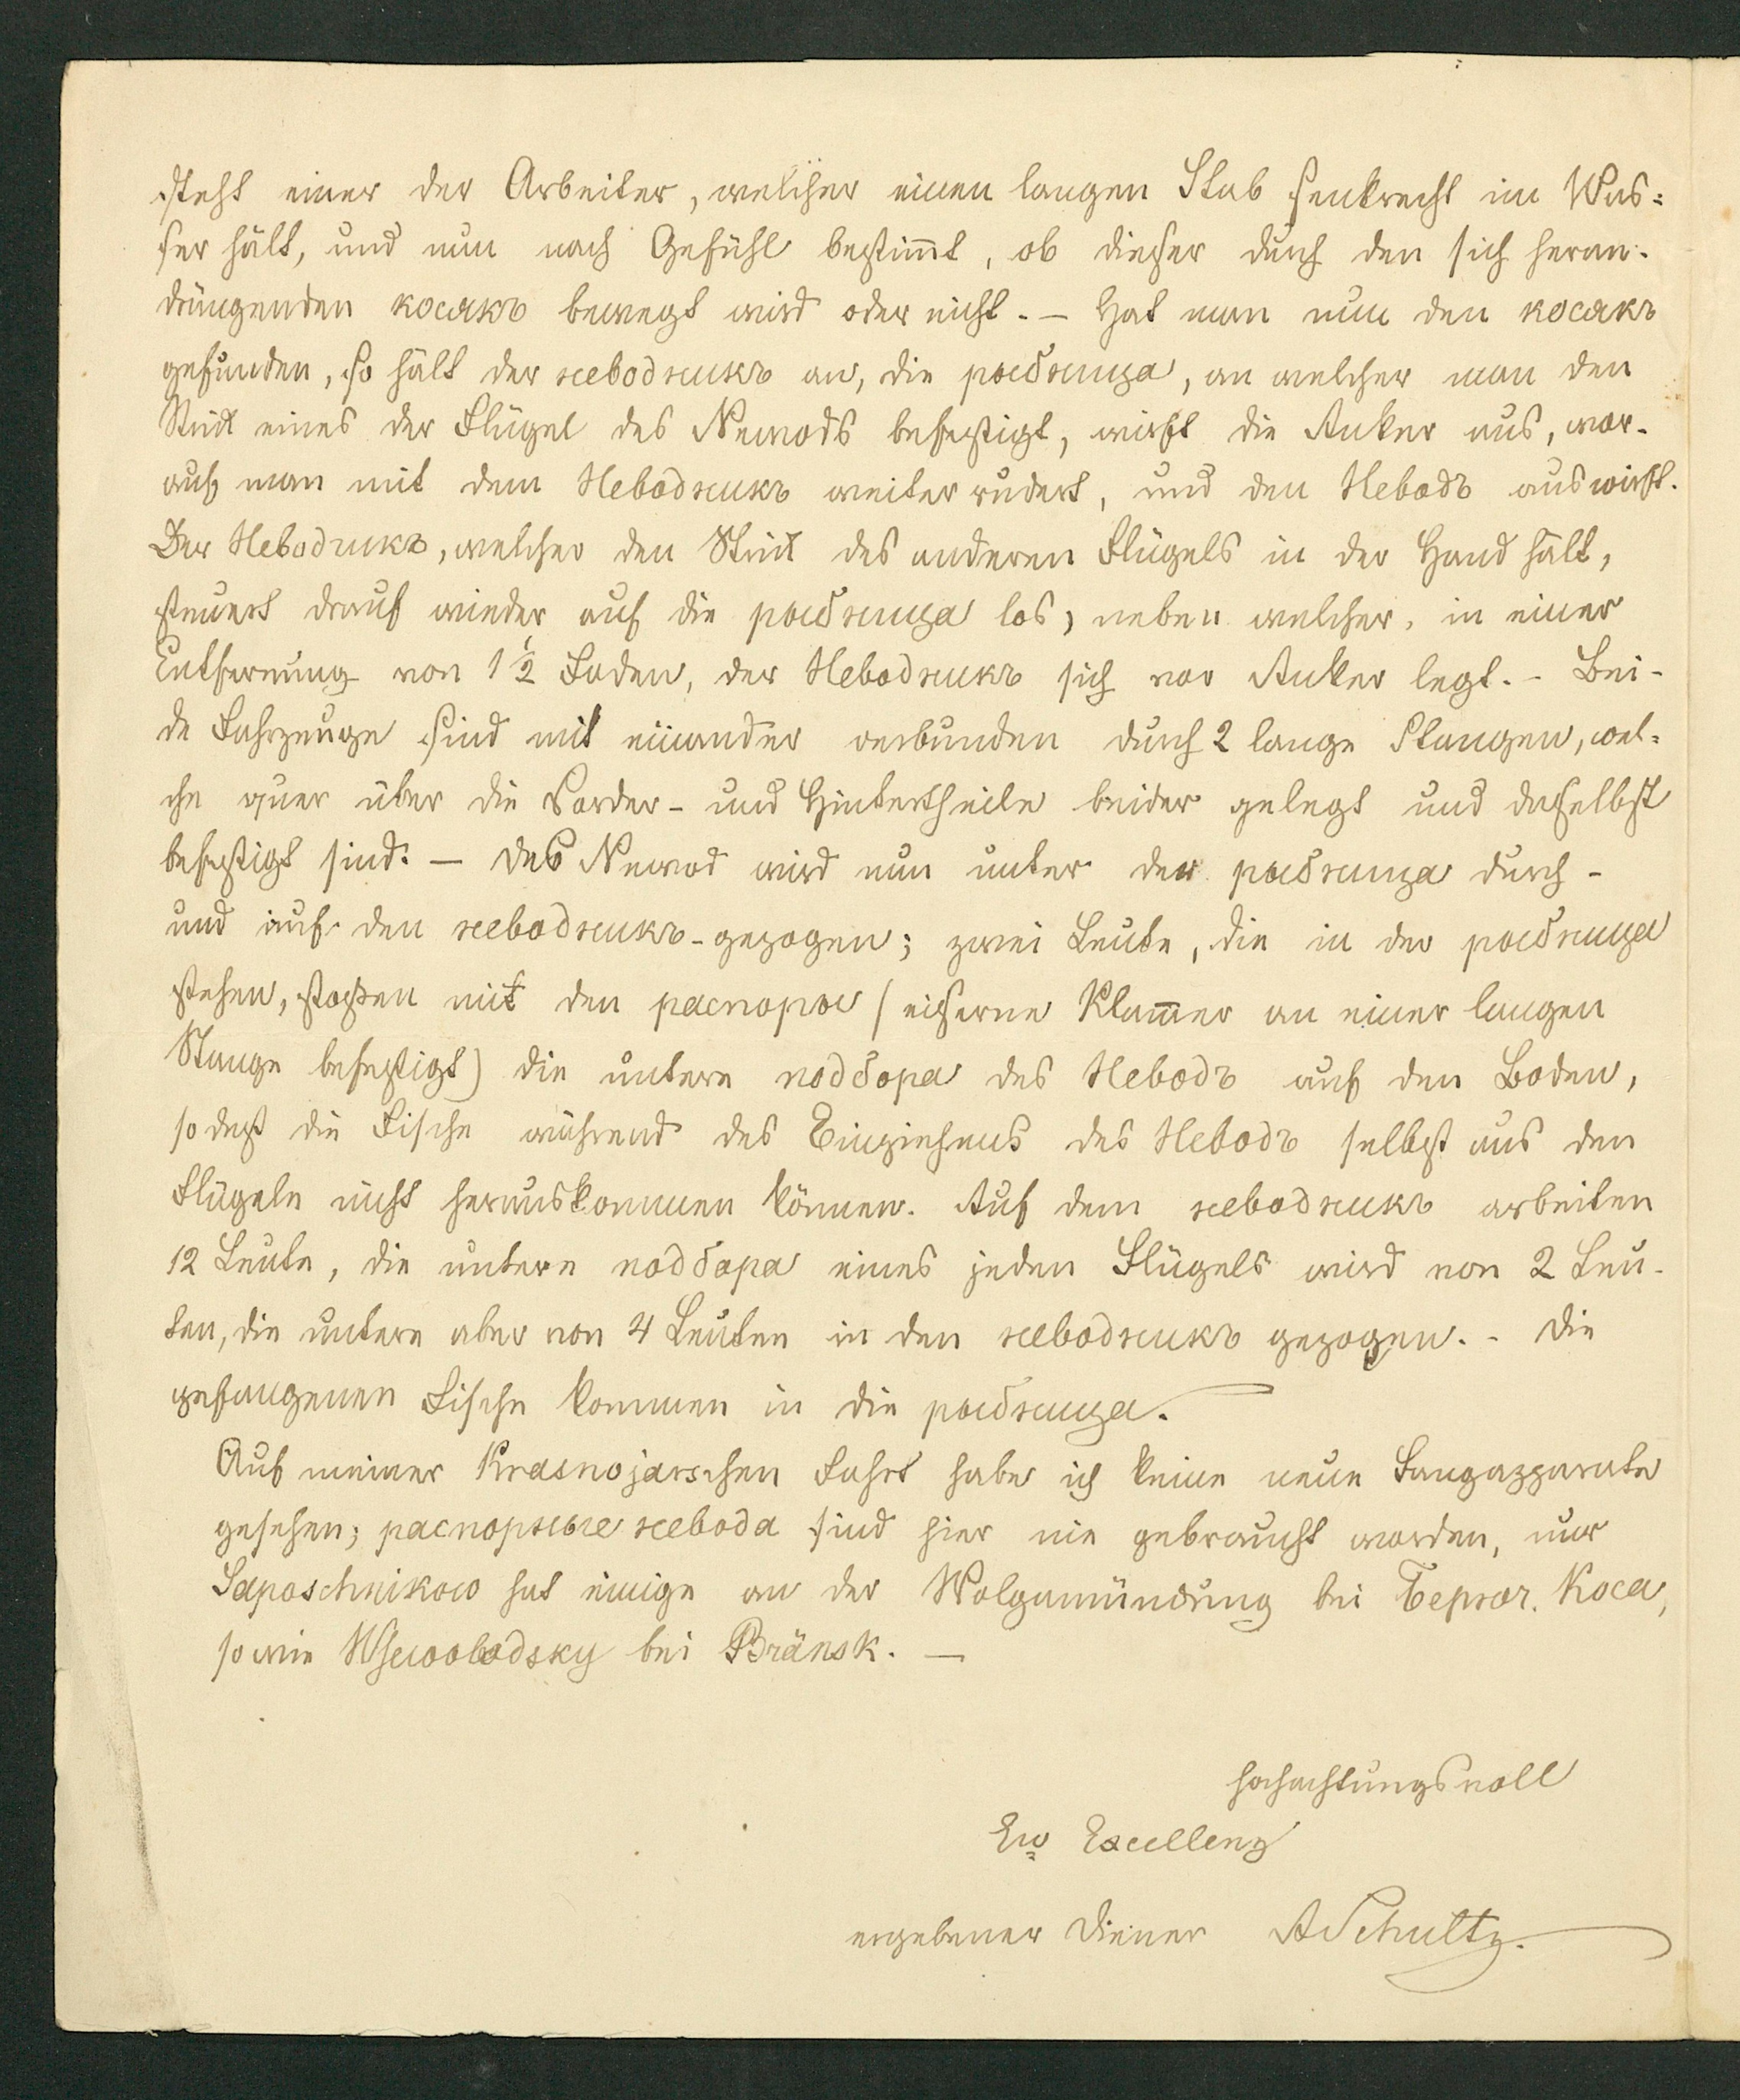 steht einer der Arbeiter, welcher einen langen Stab senkrecht im Was-
ser hält, und nun nach Gefühl bestim̄t, ob dieser durch den sich heran-
drängenden косякъ bewegt wird oder nicht. – Hat man nun den косякъ
gefunden, so hält der неводникъ an, die рыбница, an welcher man den
Strick eines der Flügel des Newods befestigt, wirft die Anker aus, wor-
auf man mit dem Неводникъ weiter rudert, und den Неводъ auswirft.
Der Неводникъ, welcher den Strick des anderen Flügels in der Hand hält,
steuert drauf wieder auf die рыбница los, neben welcher, in einer
Entfernung von 1 ½ Faden, der Неводникъ sich vor Anker legt. – Bei-
de Fahrzeuge sind mit einander verbunden durch 2 lange Stangen, wel-
che quer über die Vorder- und Hintertheile beider gelegt und daselbst
befestigt sind. – Das Newod wird nun unter der рыбница durch-
und auf den неводникъ gezogen; zwei Leute, die in der рыбница
stehen, stoßen mit den распоры (eiserne Klam̄er an einer langen
Stange befestigt) die untere подбора des Неводъ auf den Boden,
so daß die Fische während des Einziehens des Неводъ selbst aus den
Flügeln nicht herauskommen können. Auf dem неводникъ arbeiten
12 Leute, die untere подбора eines jeden Flügels wird von 2 Leu-
ten, die untere aber von 4 Leuten in den неводникъ gezogen. – Die
gefangenen Fische kommen in die рыбница.
Auf meiner Krasnojarschen Fahrt habe ich keine neue Fangapparate
gesehen; распорные невода sind hier nie gebraucht worden, nur
Saposchnikow hat einige an der Wolgamündung bei Коса,
so wie Wsewolodsky bei Bränsk. –
hochachtungsvoll
Ew Excellenz
ergebener Diener ASchultz.